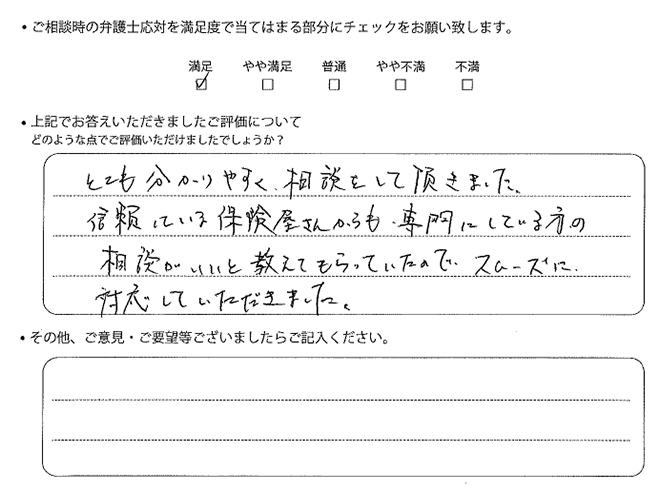 ・ご相談時の弁護士応対を満足度で当てはまる部分にチェックをお願い致します。
満足 やや満足 普通 やや不満 不満
・上記でお答えいただきましたご評価について
どのような点でご評価いただけましたでしょうか？
とても分かりやすく、相談をして頂きました。
信頼している保険屋さんからも、専門にしている方の
相談がいいと教えてもらっていたので、スムーズに
対応していただきました。
・その他、ご意見・ご要望等ございましたらご記入ください。